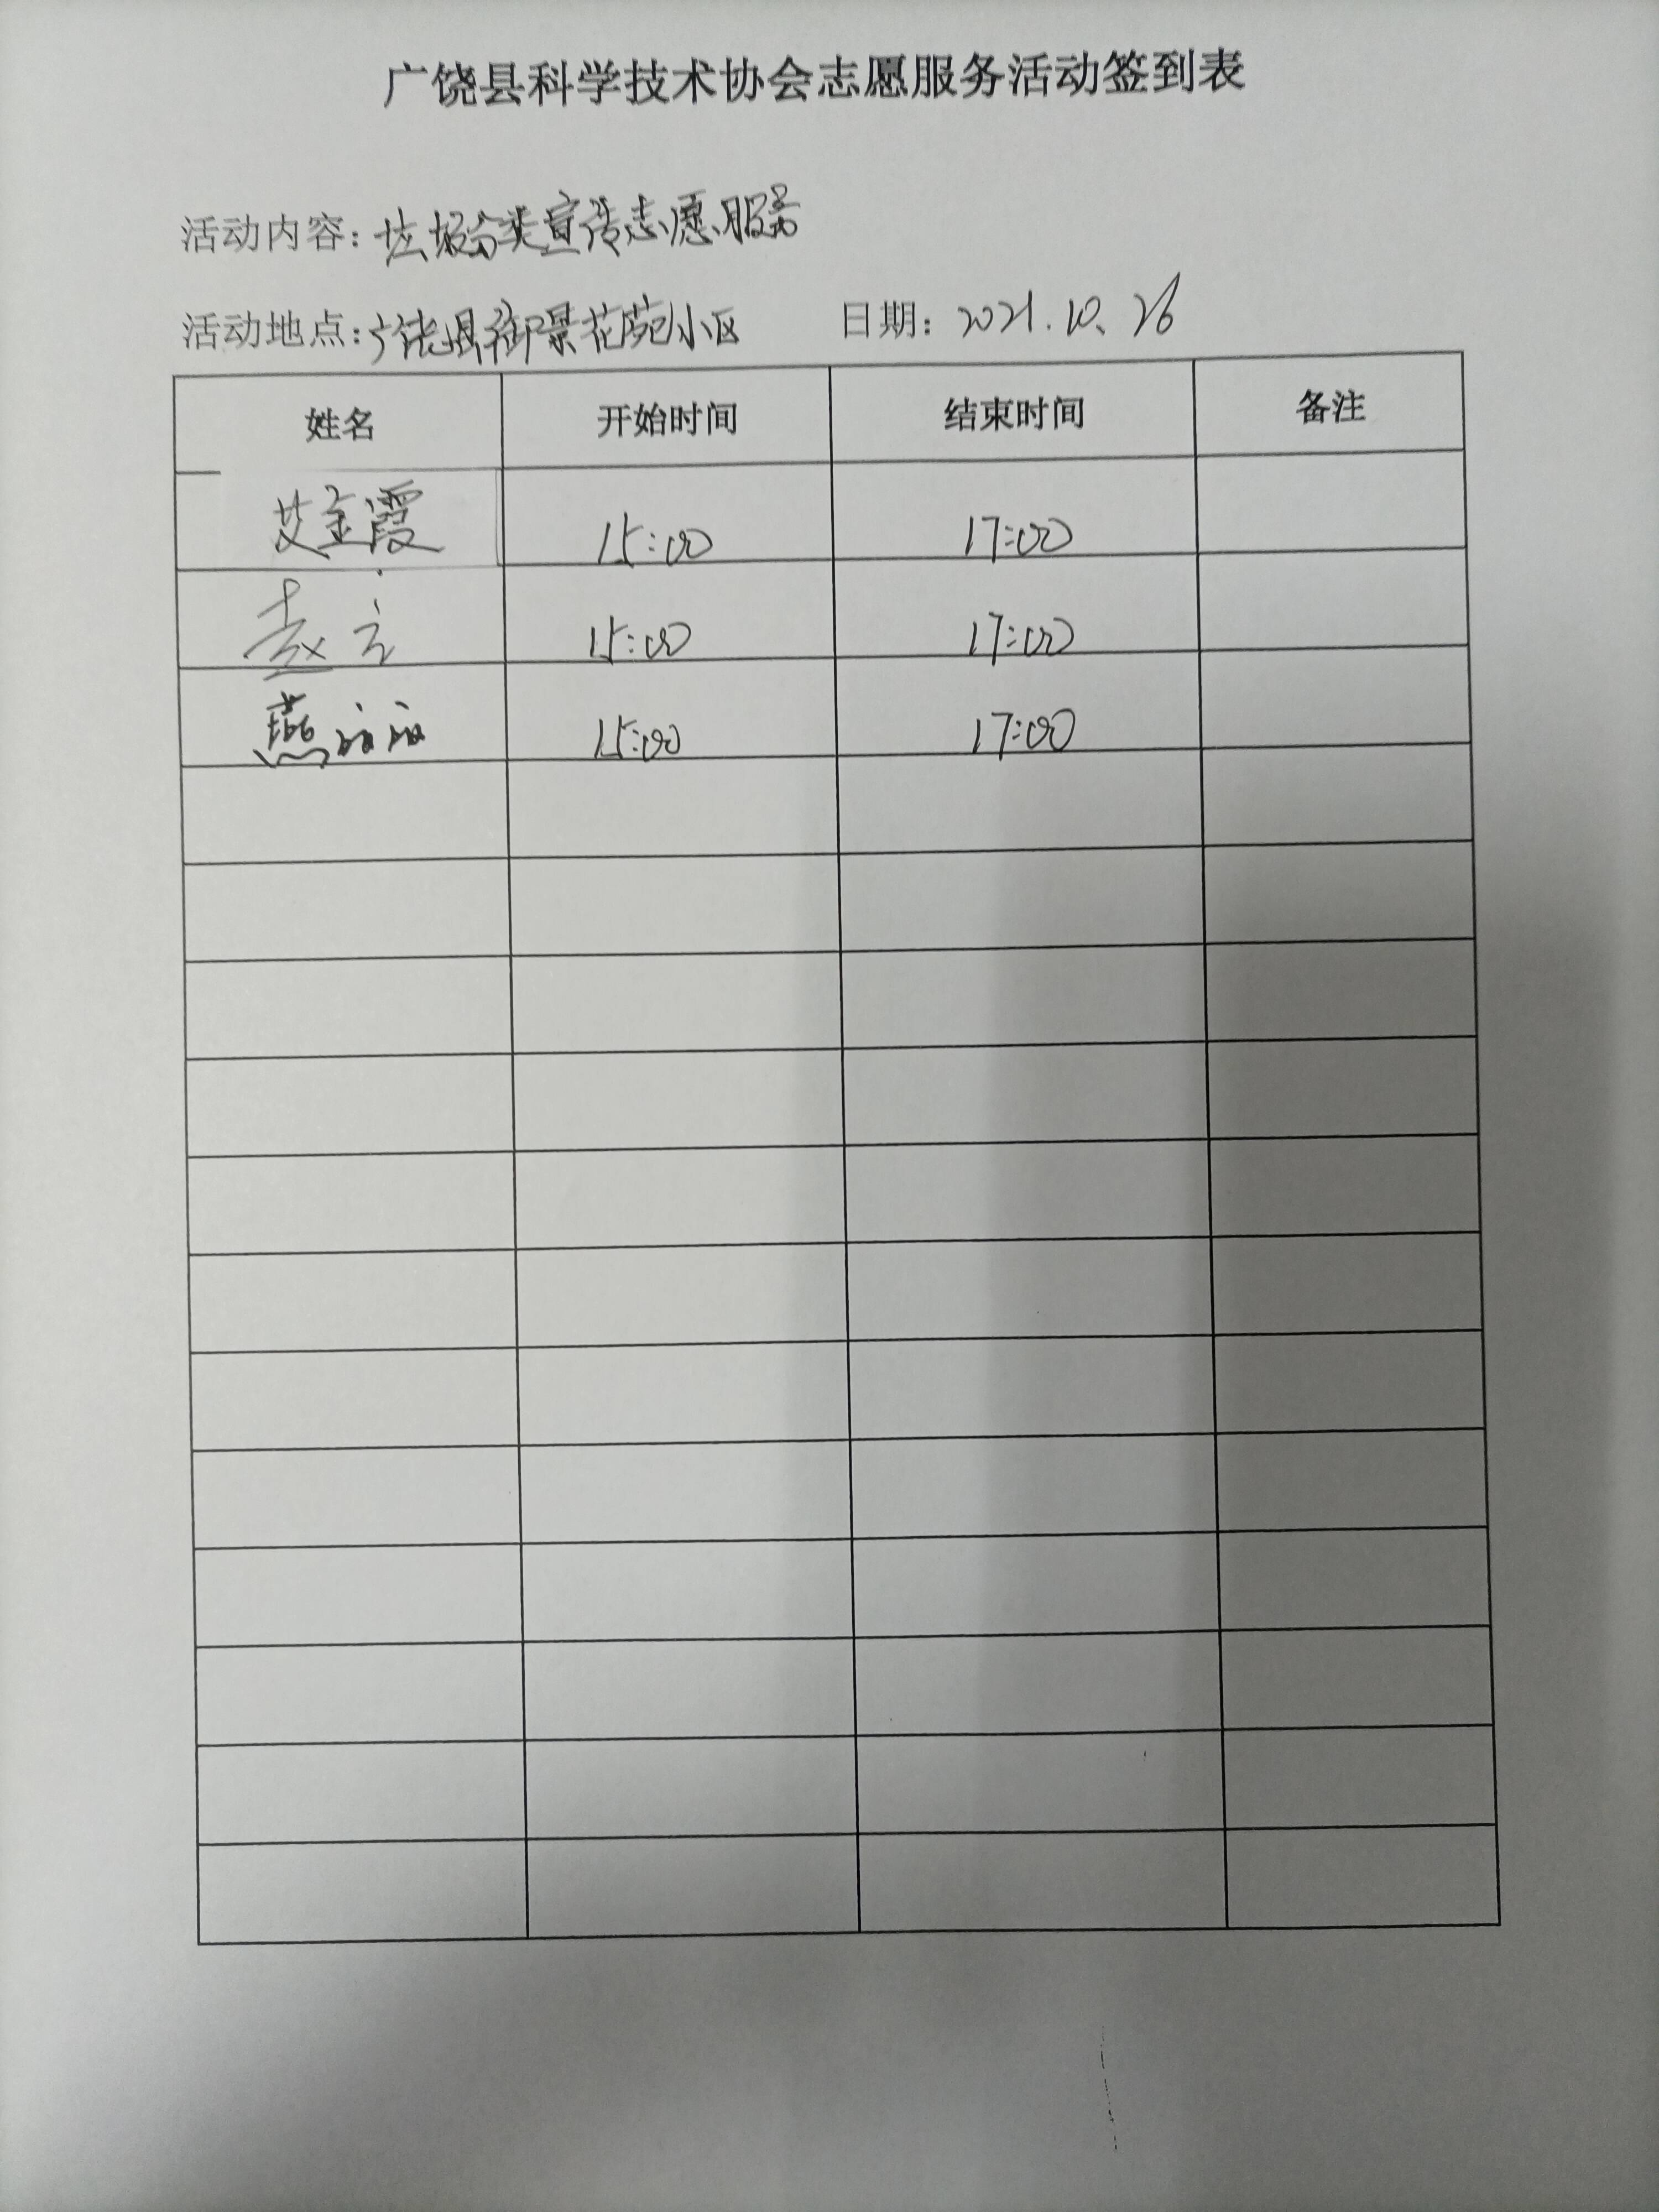 广饶县科学技术协会志愿服务活动签到表
活动内容：垃圾分类宣传志愿服务
活动地点：广饶县御景花苑小区 日期：2021.10.26
姓名 开始时间 结束时间 备注
艾金霞 15:00 17:00
赵 15:00 17:00
燕 15:00 17:00